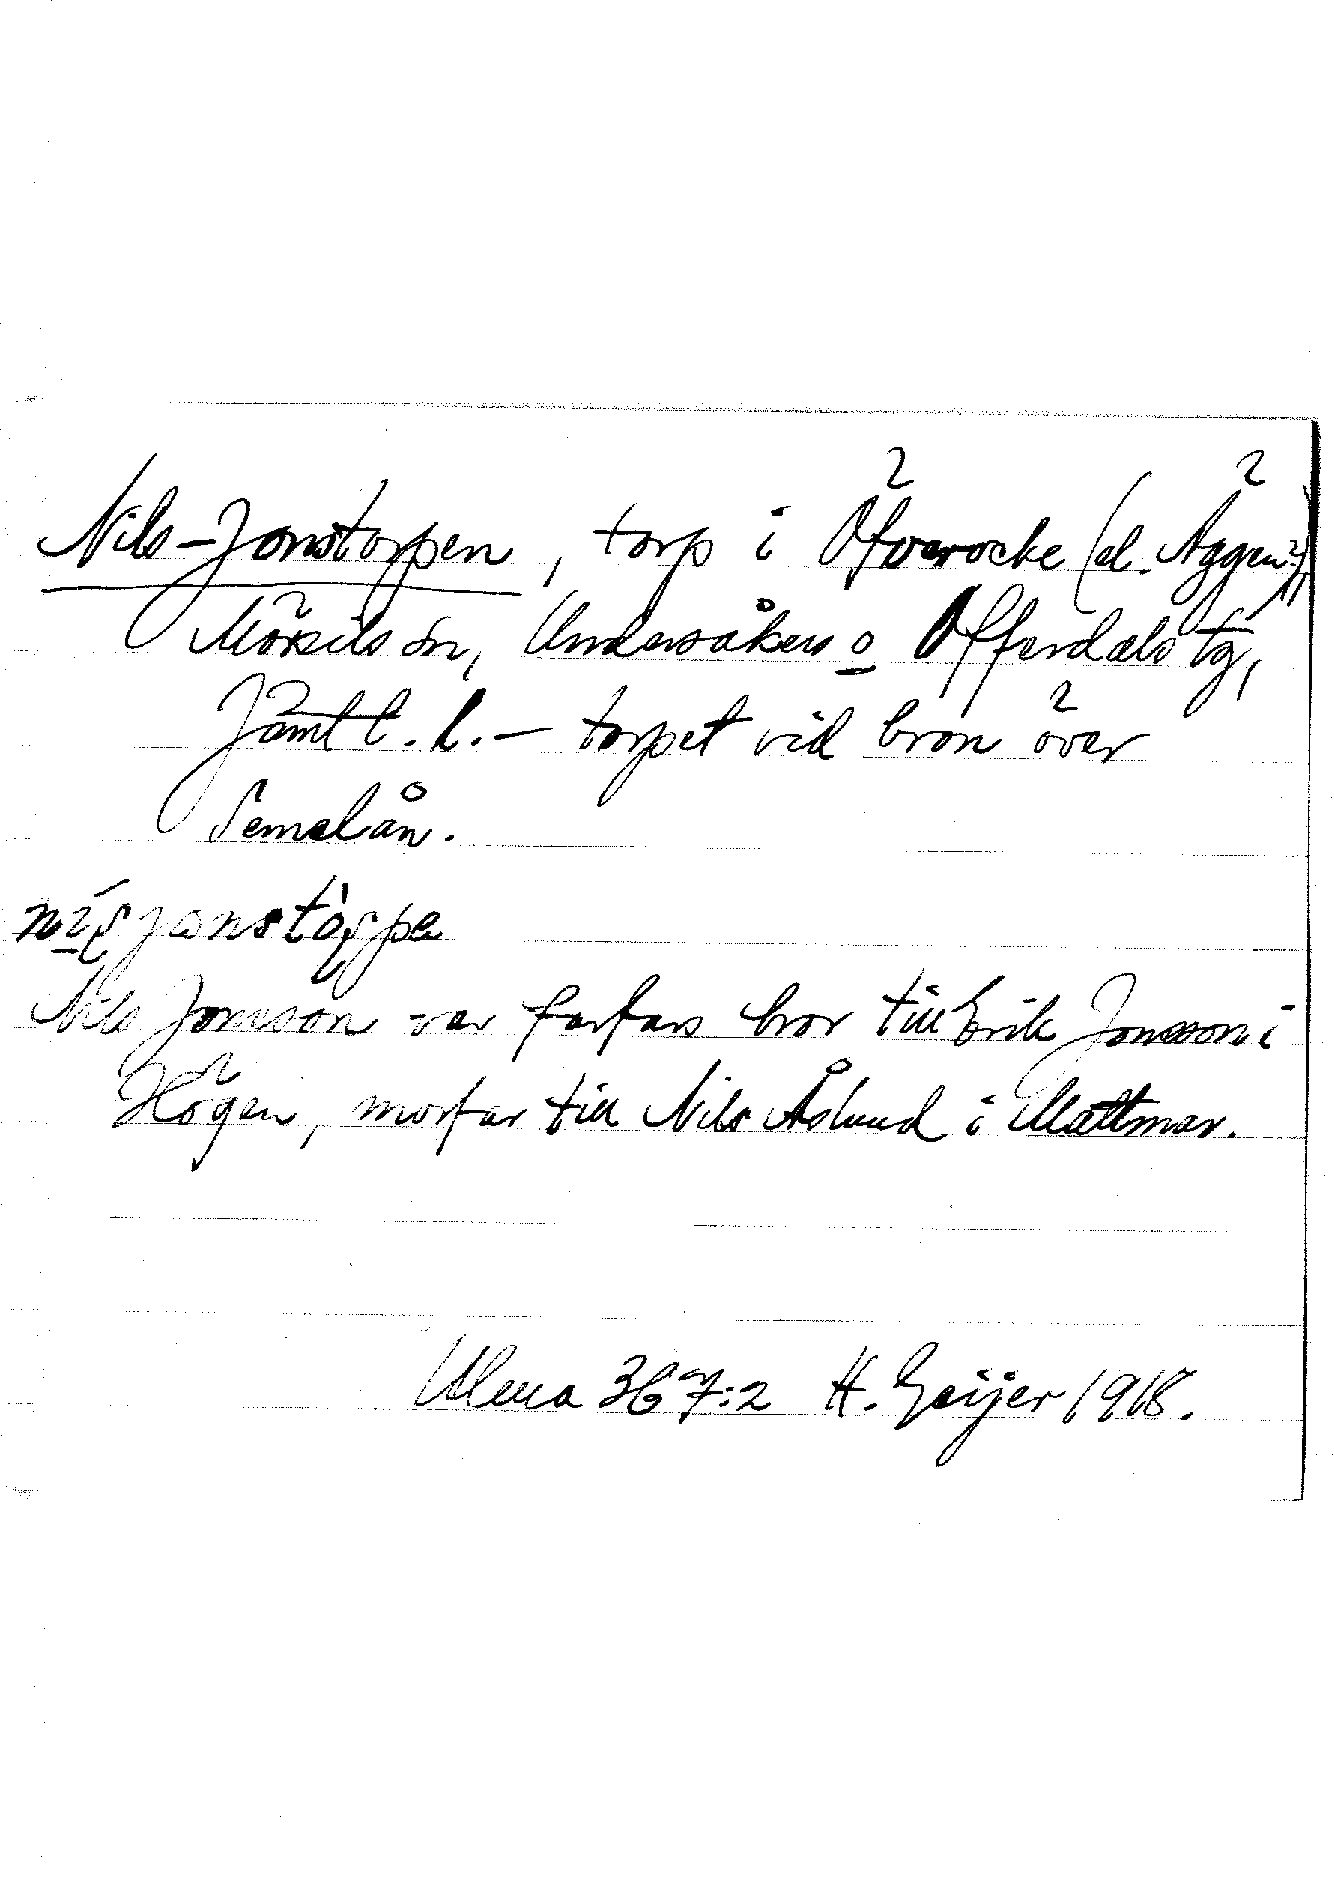 Nils-Jonstorpen, torp i Öfverocke (el. Äggen?),
Mörsils sn, Undersåkers o Offerdals tg,
Jämtl. l. – torpet vid bron över
Semlån.
Nils Jonsson var farfars bror till Erik Jonsson i
Högen, morfar till Nils Åslund i Mattmar.
Ulma 367:2 H. Geijer 1918.